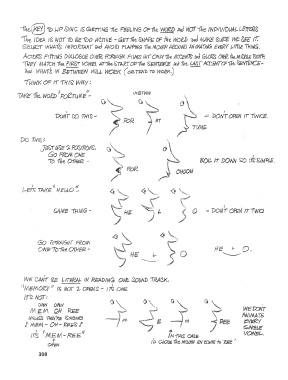 The KEY to LIP SYNC IS GETTING the FEELING of the WORD AND NOT THE INDIVIDUAL LETTERS.
The IDEA IS NOT TO BE TOO ACTIVE - GET the SHAPE OF the WORD and MAKE SURE WE SEE IT.
SELECT WHAT'S IMPORTANT and AVOID FLAPPING the MOUTH AROUND ANIMATING EVERY LITTLE THING.
ACTORS FITTING DIALOGUE OVER FOREIGN FILMS HIT ONLY the ACCENTS and GLOSS OVER the MIDDLE PARTS.
THEY MATCH the FIRST VOWEL AT the START OF the SENTENCE and the LAST ACCENT OF the SENTENCE -
and WHAT'S IN BETWEEN WILL WORK (OR TEND TO WORK.)
THINK OF IT THIS WAY:
TAKE the WORD "FORTUNE" -
DON'T DO THIS -
FOR
TUNE
- DON'T OPEN IT TWICE.
DO THIS:
JUST USE 2 POSITIONS.
GO FROM ONE
TO the OTHER -
FOR
CHOON
BOIL IT DOWN SO IT'S SIMPLE.
LET'S TAKE "HELLO".
SAME THING -
HE
L
O
- DON'T OPEN IT TWO
GO STRAIGHT FROM
ONE TO the OTHER -
HE
O
HE
O.
WE CAN'T BE LITERAL IN READING OUR SOUND TRACK.
"MEMORY" IS NOT 2 OPENS - IT'S ONE
IT'S NOT:
OPEN OPEN
MEM OH REE
UNLESS THEY'RE SINGING
♪ MEM - OH - REES ♪
IT'S "MEM-REE"
OPEN
M
E
M
REE
IN THIS CASE
I'D CLOSE the MOUTH
WE DON'T
ANIMATE
EVERY
SINGLE
VOWEL.
308